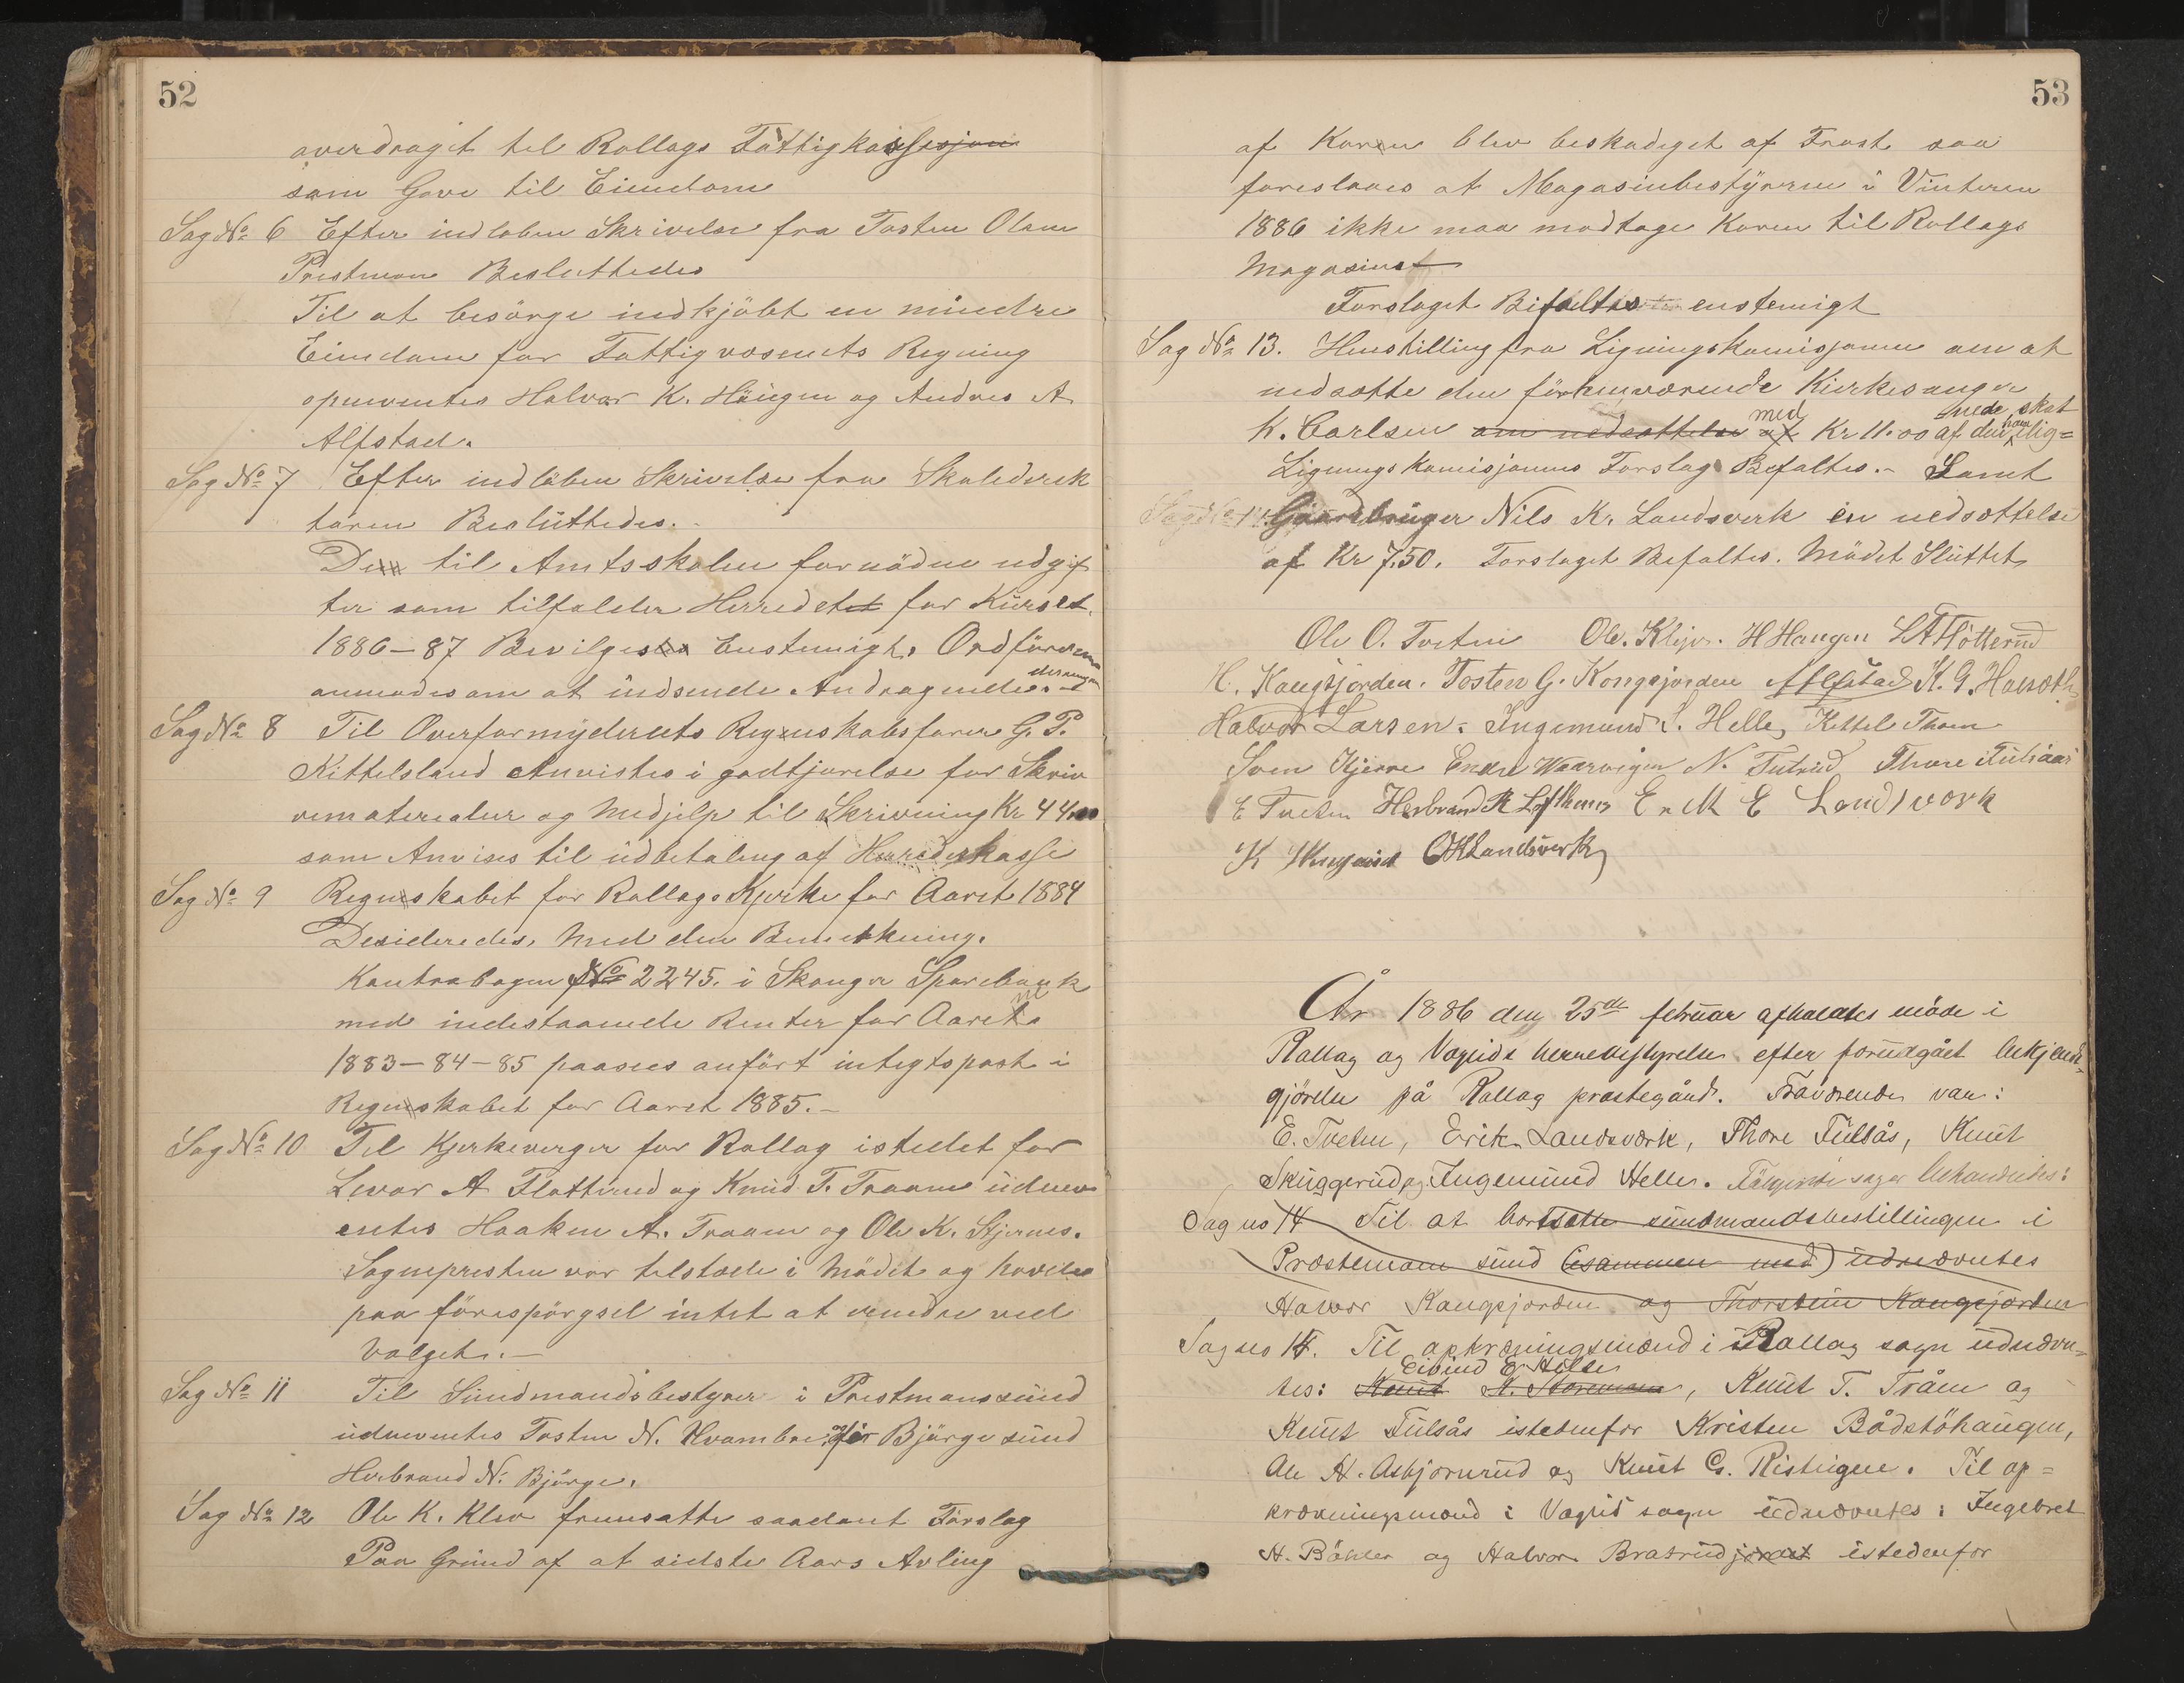 52
overdraget til Rollags Fattigkasse
som Gave til Eiendom
Sag No 6 Efter indloben Skrivelse fra Tosten Olsen
Prestmoen Besluttedes
Til at besörge indkjöbt en mindre
Eiendom for Fattigvæsenets Regning
opnevntes Halvor K. Höugen og Andres A
Alfstad.
Sag No 7 Efter indloben Skrivelse fra Skoledirek
tören Beslüttedes.
De til Amtsskolen fornödne udgif
ter som tilfalder Herredet for Kürset
1886-87 Bevilges Enstemigt. Ordföreren
anmodes om at indsende Andragende derom
Sag No 8 Til Overformynderiets Regnskabsforer G. P.
Kittelsland Anvistes i godtjorelse for Skriv
ematerialer og Medjelp til Skrivning Kr 44.00
som Anvises til üdbetaling af Herredskasse
Sag No 9 Regnskabet for Rollags Kjerke for Aaret 1884
Desideredes, Med den Bemerkning.
Kontrabogen No 2245. i Skouger Sparebank
med indestaaende Renter for Aarene
1883-84-85 paasees anfört integtspost i
Regnskabet for Aaret 1885.-
Sag No 10 Til Kjerkeverger for Rollag istedet for
Levor A Flotterud og Knud T. Traaen üdnev
entes Haaken A. Traaen og Ole K. Stjernes.
Sognepresten var telstede i Mödet og havde
paa förespörgsel intet at erindre ved
Valget.-
Sag No 11 Til Sundmandsbestyrer i Prestmoensünd
üdnevntes Tosten N. Hvambre, for Björge sünd
Herbrand N. Björge.
Sag No 12 Ole K. Klev fremsatte saadant Forslag
Paa Gründ af at sidste Aars Avling
53
af Koren blev beskadiget af Frost saa
foreslaaes at Magasinbestyreren i Vinteren
1886 ikke maa modtage Koren til Rollags
Magasinet
Forslaget Bifaltes enstemigt
Sag No 13. Henstilling fra Ligningskomisjonen om at
nedsætte den förhenværende Kirkesanger
K. Carlsen om nedsættelse af med Kr 11.00 af den ham ilig=
=nede skat
Ligningskomisjonens Forslag Befaltes.- Samt
Gaardbrüger Nils Kr. Landsverk en nedsættelse
af Kr 7.50. Forslaget Befaltes. Mödet Slüttet
Ole O. Tveten Ole. Klev. H Haugen L A Flötterud
H. Kongsjorden. Tosten G. Kongsjorden A Alfstad K. G.
Halvor Larsen. Ingemund S. Helle, Kittel Thoen
Sven Stjerne Endre Waarvigen N. Tutrud Thore Fulsaas
E Tveten Herbrand R Lofthuus Erik E Landsverk
K O K Landsverk
År 1886 den 25de februar afholdtes möde i
Rollag og Vegglids herredsstyrelse efter forudgået bekjend=
gjörelse på Rollag prestegård. Fraværende var:
E. Tveten, Erik Landsværk, Thore Fulsås, Knut
Skuggerüd og Ingemund Helle. Fölgende sager behandledes:
Sag no 14 Til at bortsætte sundmandsbestillingen i
Præstemoen sund (sammen med) udnævntes
Halvor Kongsjorden og Thorstein Kongsjorden
Sag no 14. Til opkrævningsmænd i Rollag sogn udnævn=
Eivind E Helle
tes: Knut N. Storemoen, Knut T. Tråen og
Knut Fulsås istedenfor Kristen Bådstöhaugen,
Ole H. Asbjornrud og Knut G. Risteigen. Til op=
krævningsmænd i Veglid sogn üdnævntes: Ingebret
H. Båhler og Halvor Bratrud istedenfor